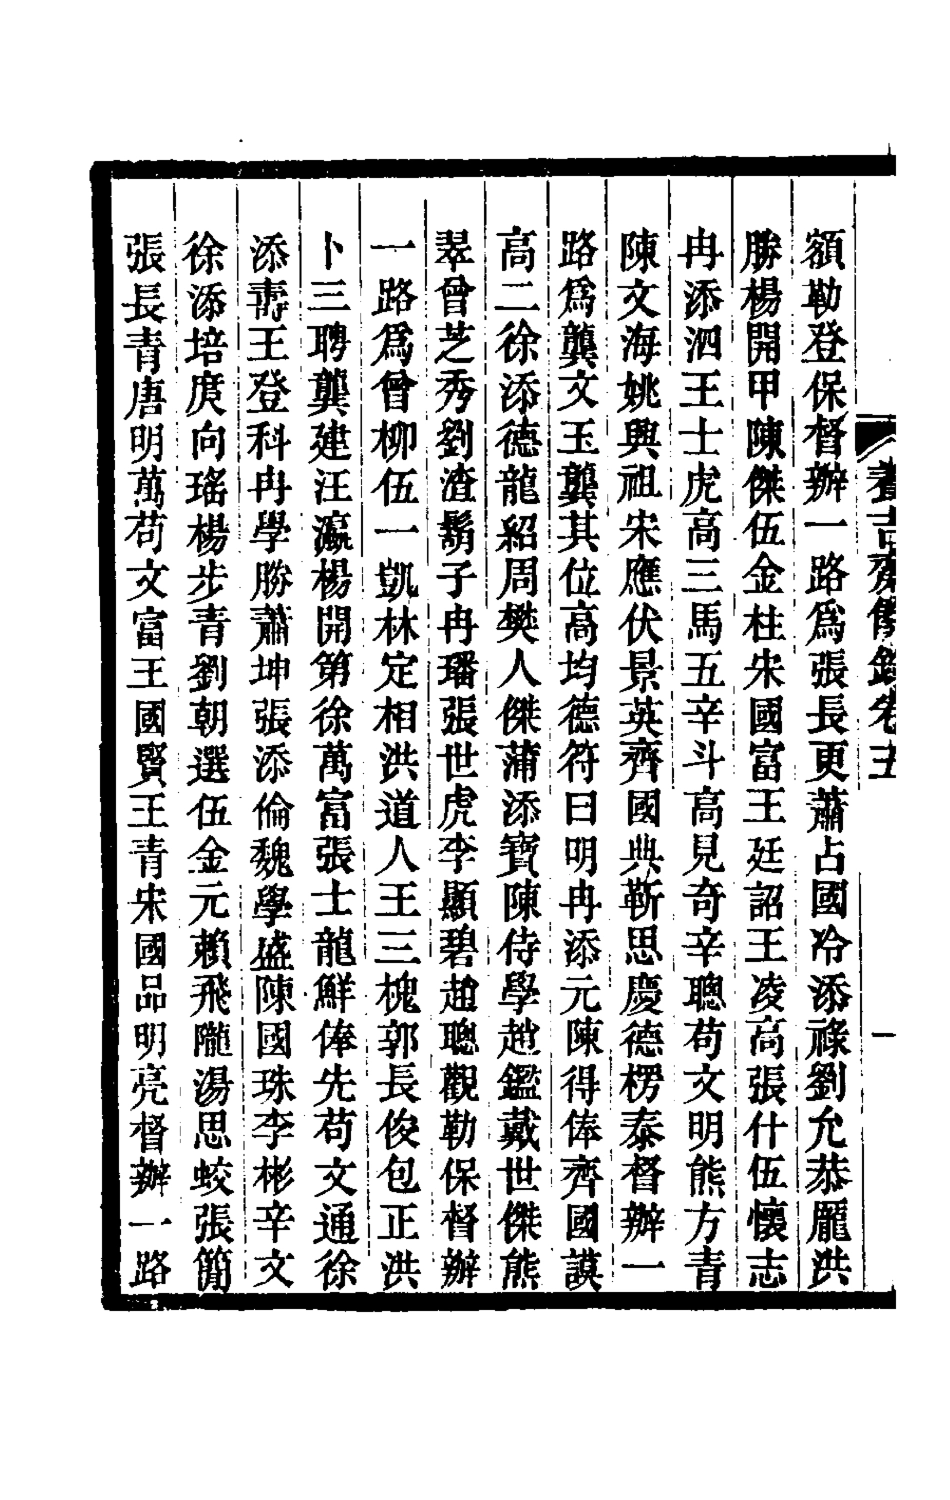 養吉齋餘錄卷五
一
額勒登保督辦一路爲張長更蕭占國冷添祿劉允恭龎洪
勝楊開甲陳傑伍金柱宋國富王廷詔王凌高張什伍懷志
冉添泗王士虎高三馬五辛斗高見奇辛聰苟文明熊方青
陳文海姚興祖宋應伏景英齊國典靳思慶德楞泰督辦一
路爲龔文玉龔其位高均德符曰明冉添元陳得俸齊國謨
高二徐添德龍紹周樊人傑蒲添寶陳侍學趙鑑戴世傑熊
翠曾芝秀劉渣鬍子冉璠張世虎李顯碧趙聰觀勒保督辦
一路爲曾柳伍一凱林定相洪道人王三槐郭長俊包正洪
卜三聘龔建汪瀛楊開第徐萬富張士龍鮮俸先苟文通徐
添壽王登科冉學勝蕭坤張添倫魏學盛陳國珠李彬辛文
徐添培庹向瑤楊步青劉朝選伍金元賴飛隴湯思蛟張簡
張長青唐明萬苟文富王國賢王青宋國品明亮督辦一路